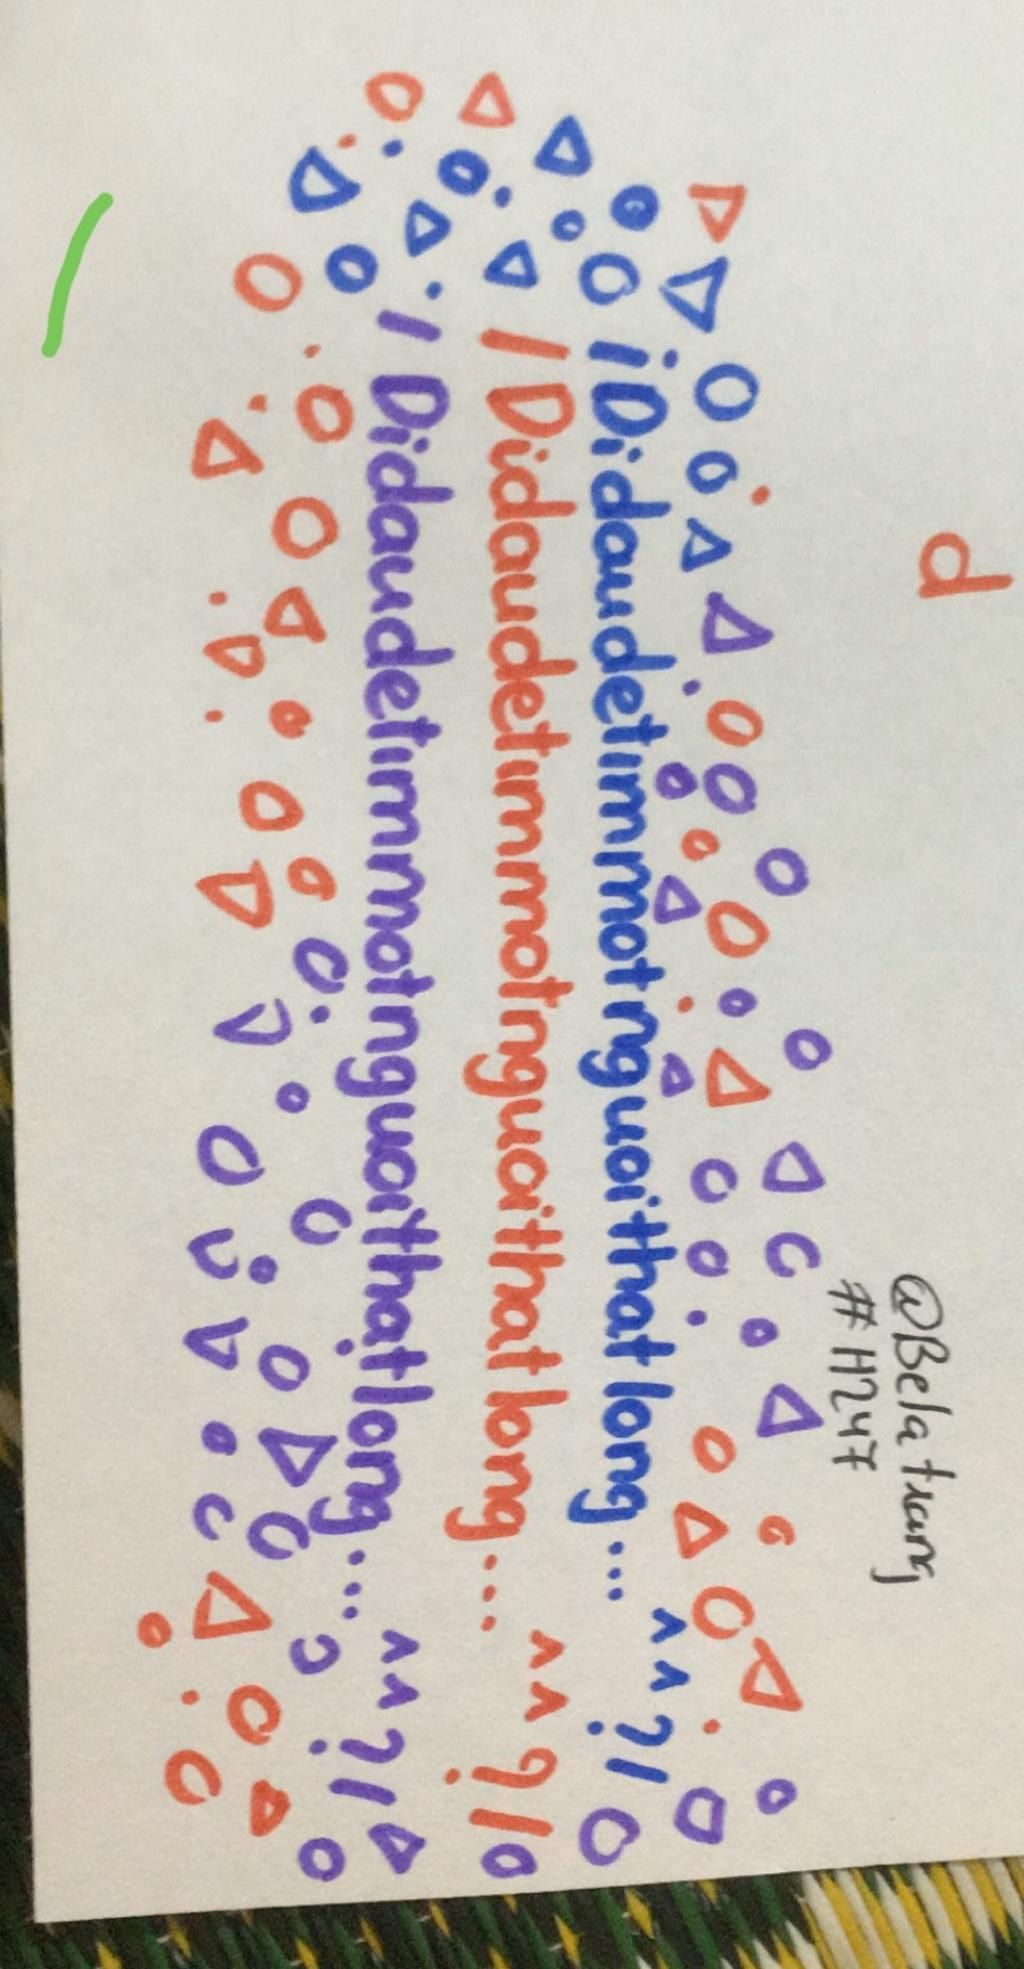 d
@Bela trang
#H247
/ Didaudetimmotnguoithatlong... ^^?/
/ Didaudetimmotnguoithatlong... ^^?/
/ Didaudetimmotnguoithạtlong... ^^?/